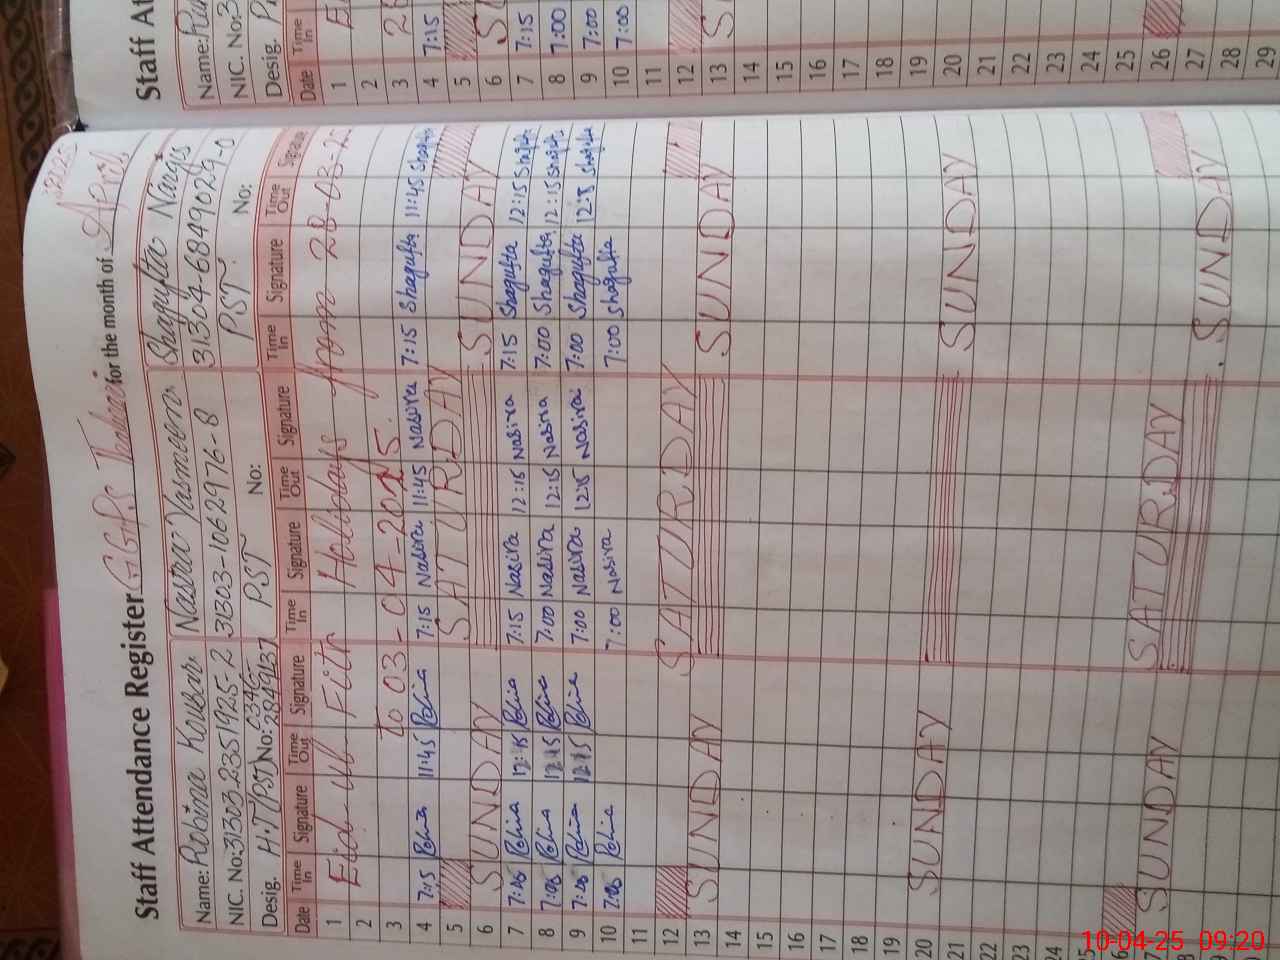 Staff Attendance Register GGPS for the month of April
Name: Robina Kousar Nasira Yasmeen Shagufta Nargis
NIC. No: 31303-2351925-2 31303-1062976-8 31304-6849029-0
Desig. H.T (PST) No: PST No: PST No:
Date Time In Signature Time Out Signature Time In Signature Time Out Signature Time In Signature Time Out Signature
1 Eid-ul-Fitr Holidays from 28-03-25
2
3 to 03-04-2025.
4 7:15 Robina 11:45 Robina 7:15 Nasira 11:45 Nasira 7:15 Shagufta 11:45 Shagufta
5 SATURDAY
6 SUNDAY SUNDAY
7 7:15 Robina 12:15 Robina 7:15 Nasira 12:15 Nasira 7:15 Shagufta 12:15 Shagufta
8 7:00 Robina 12:15 Robina 7:00 Nasira 12:15 Nasira 7:00 Shagufta 12:15 Shagufta
9 7:00 Robina 12:15 Robina 7:00 Nasira 12:15 Nasira 7:00 Shagufta 12:15 Shagufta
10 7:00 Robina 7:00 Nasira 7:00 Shagufta
11
12 SATURDAY
13 SUNDAY SUNDAY
14
15
16
17
18
19
20 SUNDAY SUNDAY
21
22
23
24
SATURDAY
SUNDAY SUNDAY
Staff At
Name:
NIC. No: 3
Desig.
Date Time In
1
2
3
4 7:15
5
6
7 7:15
8 7:00
9 7:00
10 7:00
11
12
13
14
15
16
17
18
19
20
21
22
23
24
25
26
27
28
29
10-04-25 09:20